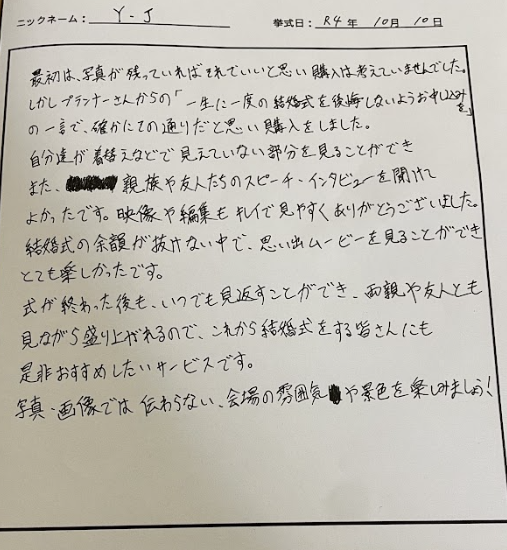 ニックネーム: Y-J 挙式日: R4年 10月 10日
最初は、写真が残っていればそれでいいと思い購入は考えていませんでした。
しかしプランナーさんからの「一生に一度の結婚式を後悔しないようお申し込みを」
の一言で、確かにその通りだと思い購入をしました。
自分達が着替えなどで見えていない部分を見ることができ
また、親族や友人たちのスピーチ・インタビューを聞けて
よかったです。映像や編集もキレイで見やすくありがとうございました。
結婚式の余韻が抜けない中で、思い出ムービーを見ることができ
とても楽しかったです。
式が終わった後も、いつでも見返すことができ、両親や友人とも
見ながら盛り上がれるので、これから結婚式をする皆さんにも
是非おすすめしたいサービスです。
写真・画像では伝わらない、会場の雰囲気や景色を楽しみましょう!